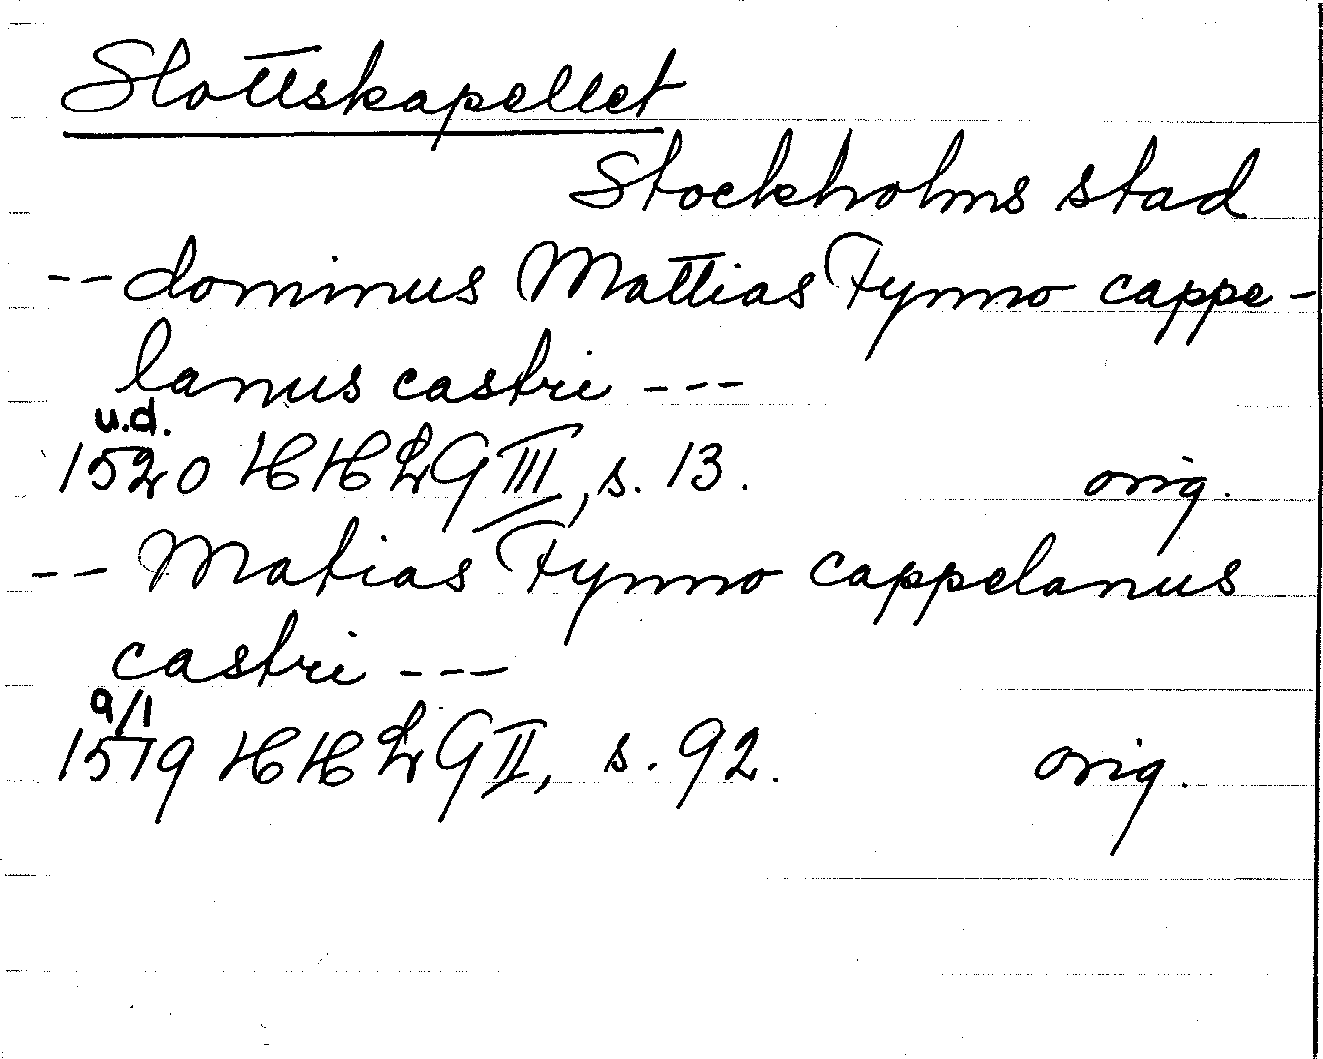 Slottskapellet
Stockholms stad
-- dominus Mattias Fynno cappe-
lanus castri ---
u.d.
1520 HHLG III, s. 13. orig.
-- Matias Fynno cappelanus
castri ---
9/1
1519 HHLG II, s. 92. orig.